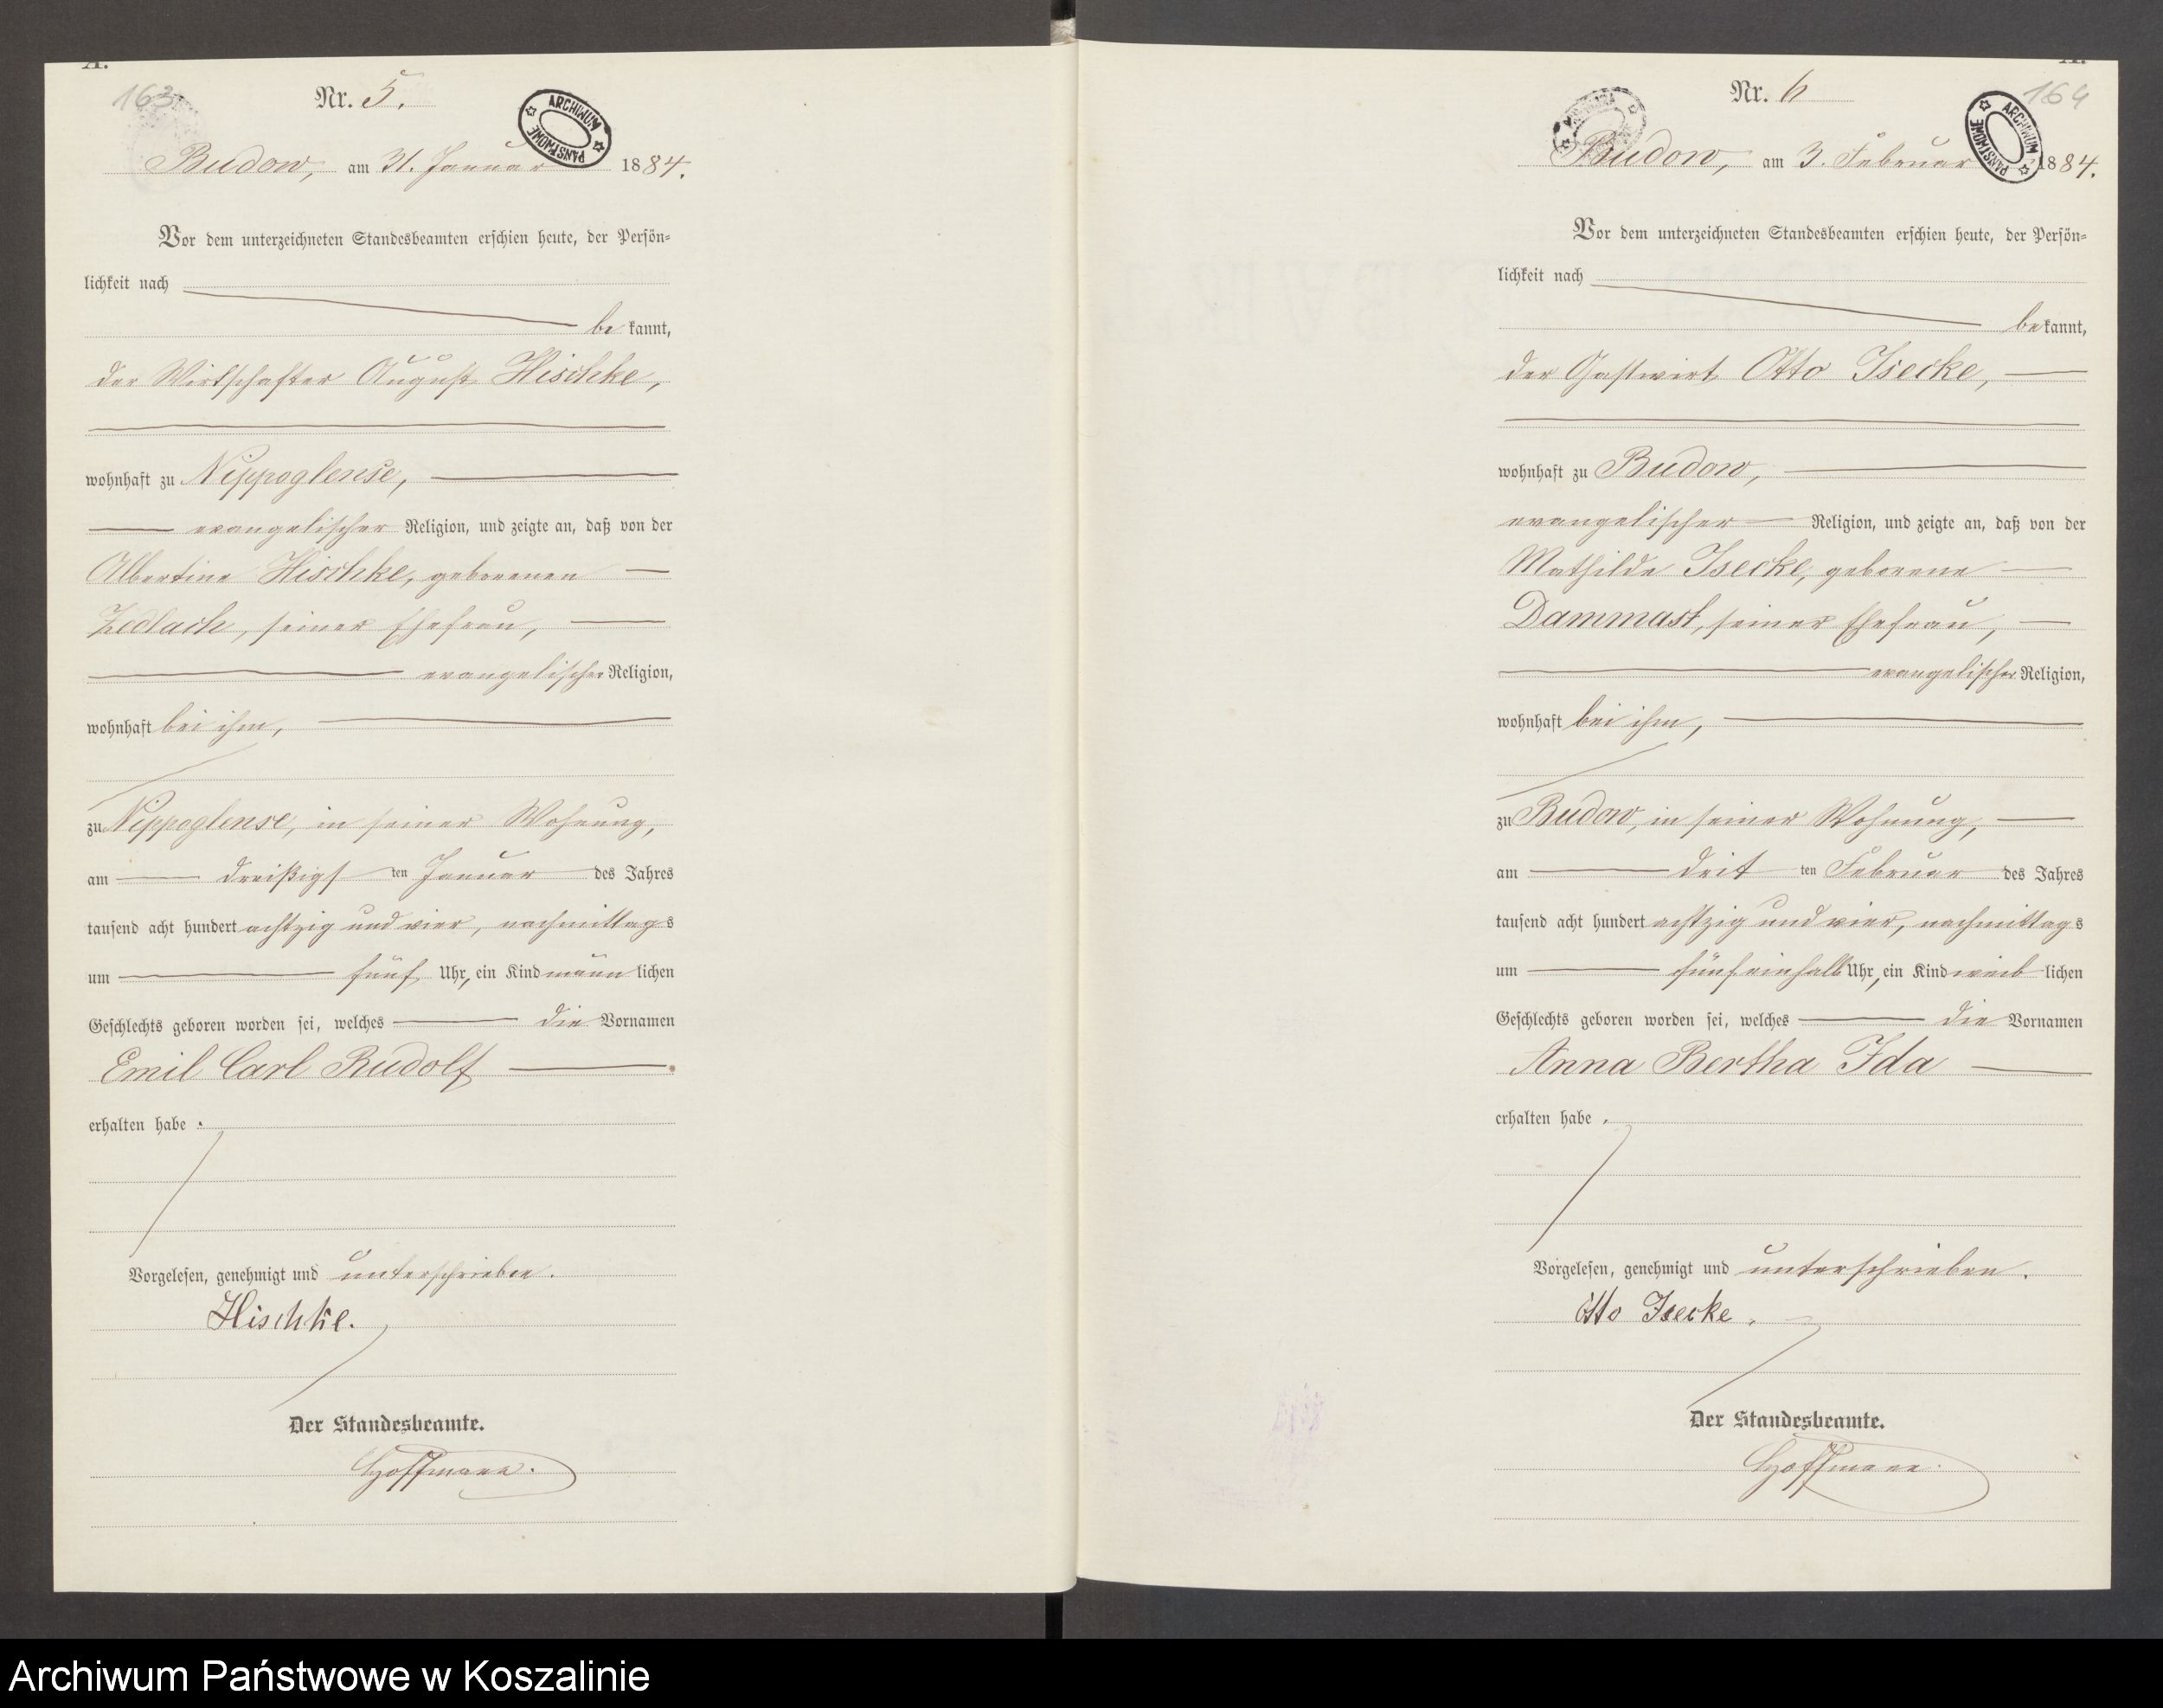 A.
163
Nr. 5.
ARCHIWUM PAŃSTWOWE
Budow, am 31. Januar 1884.
Vor dem unterzeichneten Standesbeamten erschien heute, der Persön-
lichkeit nach
be kannt,
der Wirtschafter August Hischke,
wohnhaft zu Nippoglense,
evangelischer Religion, und zeigte an, daß von der
Albertine Hischke, geborenen
Zedlach, seiner Ehefrau,
evangelischer Religion,
wohnhaft bei ihm,
zu Nippoglense, in seiner Wohnung,
am dreißigs ten Januar des Jahres
tausend acht hundert achtzig und vier, nachmittags
um fünf Uhr, ein Kind männ lichen
Geschlechts geboren worden sei, welches die Vornamen
Emil Carl Rudolf
erhalten habe.
Vorgelesen, genehmigt und unterschrieben.
Hischke.
Der Standesbeamte.
Hoffmann.
A.
164
Nr. 6
ARCHIWUM PAŃSTWOWE
Budow, am 3. Februar 1884.
Vor dem unterzeichneten Standesbeamten erschien heute, der Persön-
lichkeit nach
be kannt,
der Gastwirt Otto Isecke,
wohnhaft zu Budow,
evangelischer Religion, und zeigte an, daß von der
Mathilde Isecke, geborene
Dammast, seiner Ehefrau,
evangelischer Religion,
wohnhaft bei ihm,
zu Budow, in seiner Wohnung,
am drit ten Februar des Jahres
tausend acht hundert achtzig und vier, nachmittags
um fünfeinhalb Uhr, ein Kind weib lichen
Geschlechts geboren worden sei, welches die Vornamen
Anna Bertha Ida
erhalten habe.
Vorgelesen, genehmigt und unterschrieben.
Otto Isecke.
Der Standesbeamte.
Hoffmann.
Archiwum Państwowe w Koszalinie